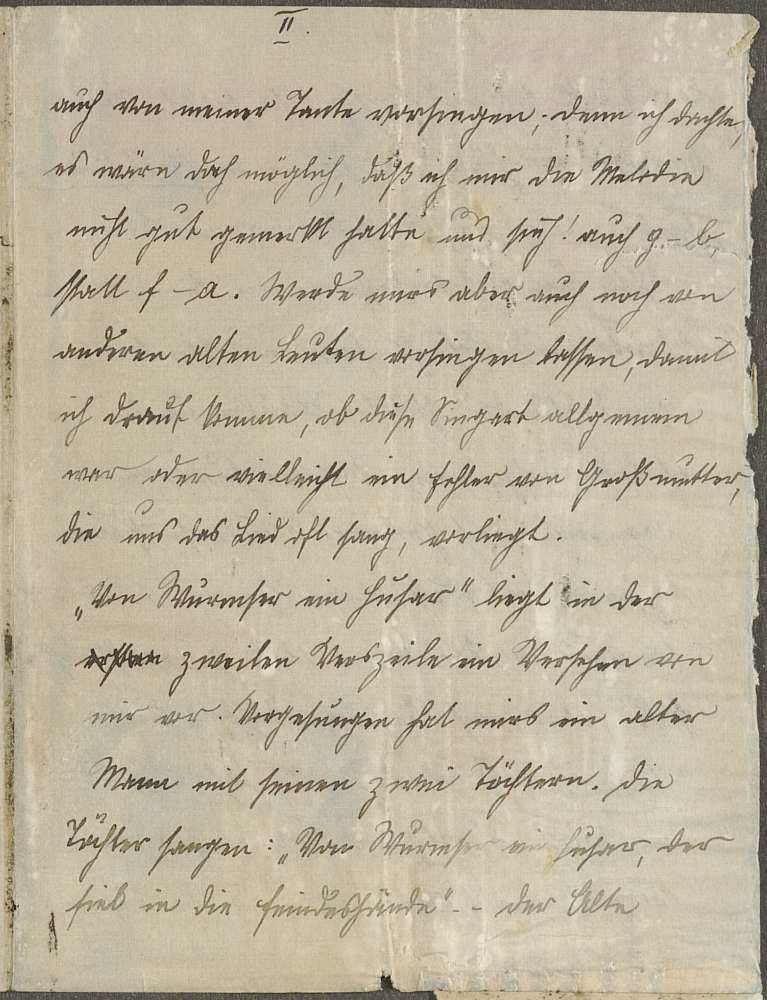 II.
auch von meiner Tante vorsingen, denn ich dachte,
es wäre doch möglich, daß ich mir die Melodie
nicht gut gemerkt hatte und sieh! auch g – b,
statt f – a. Werde mirs aber auch noch von
anderen alten Leuten vorsingen lassen, damit
ich drauf komme, ob diese Singart allgemein
war oder vielleicht ein Fehler von Großmutter,
die uns das Lied oft sang, vorliegt.
„Von Wurmser ein Husar" liegt in der
ersten zweiten Verszeile ein Versehen von
mir vor. Vorgesungen hat mirs ein alter
Mann mit seinen zwei Töchtern. Die
Töchter sangen: „Von Wurmser ein Husar, der
fiel in die Feindeshände". – der Alte